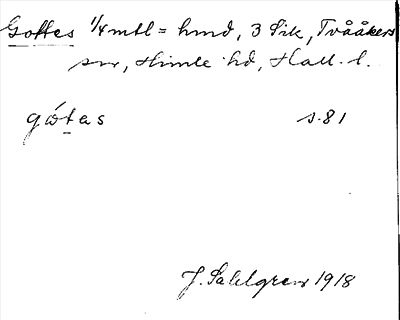 Gottes 1/4 mtl = hmd, 3 Sik, Tvååkers
sn, Himle hd, Hall. l.
gótas s. 81
J. Sahlgren 1918